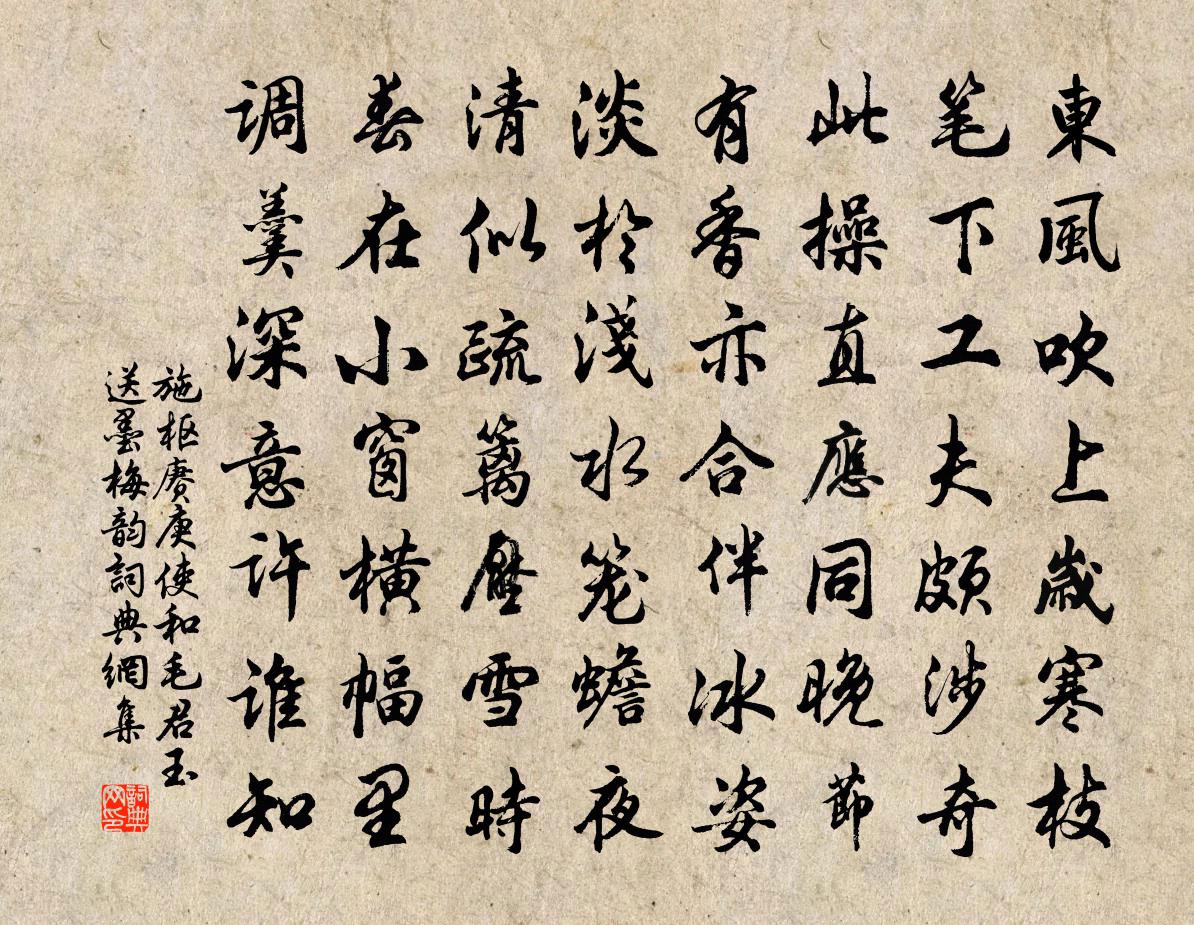 東風吹上歲寒枝
笔下工夫頗涉奇
此操直應同晚節
有香亦合伴冰姿
淡於淺水笼蟾夜
清似疏篱壓雪時
春在小窗橫幅里
调羹深意許誰知
施枢赓庾使和毛君玉
送墨梅韵詞典網集
詞典网印